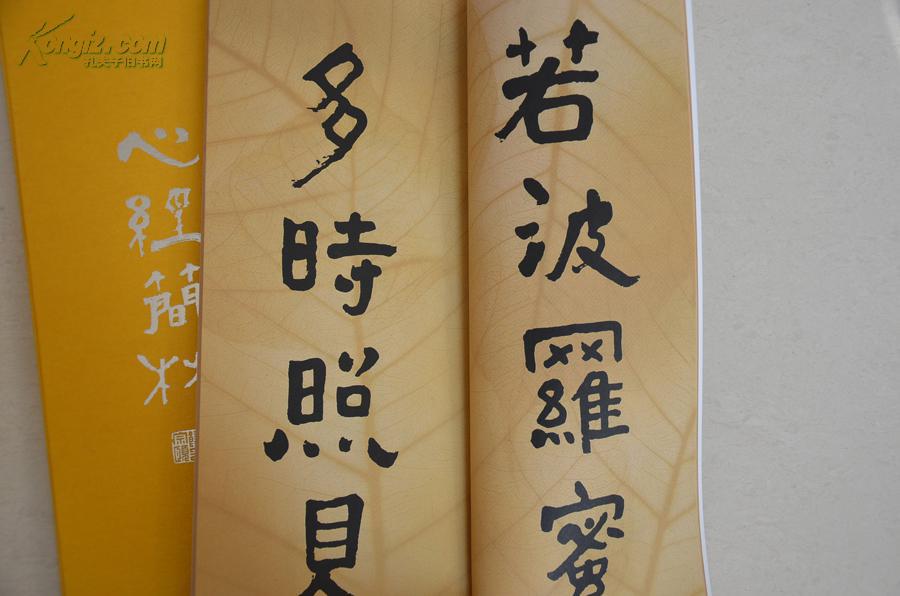 若波羅蜜
多時照見
心經簡林
Kongfz.com
孔夫子旧书网